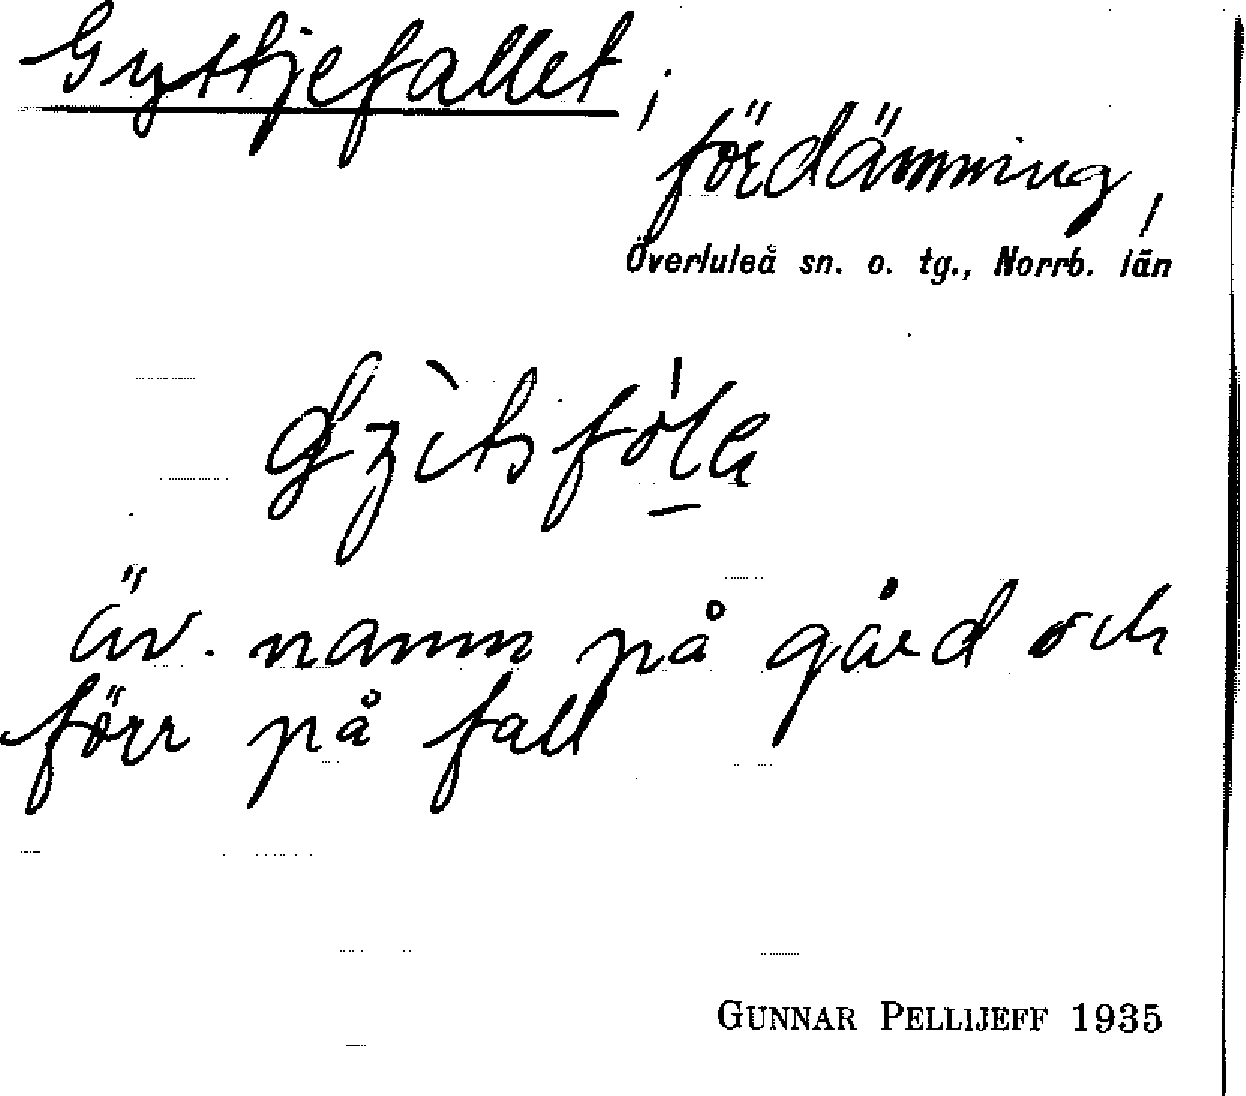 Gyttjefallet,
fördämning,
Överluleå sn. o. tg., Norrb. län
äv. namn på gård och
förr på fall
GUNNAR PELLIJEFF 1935